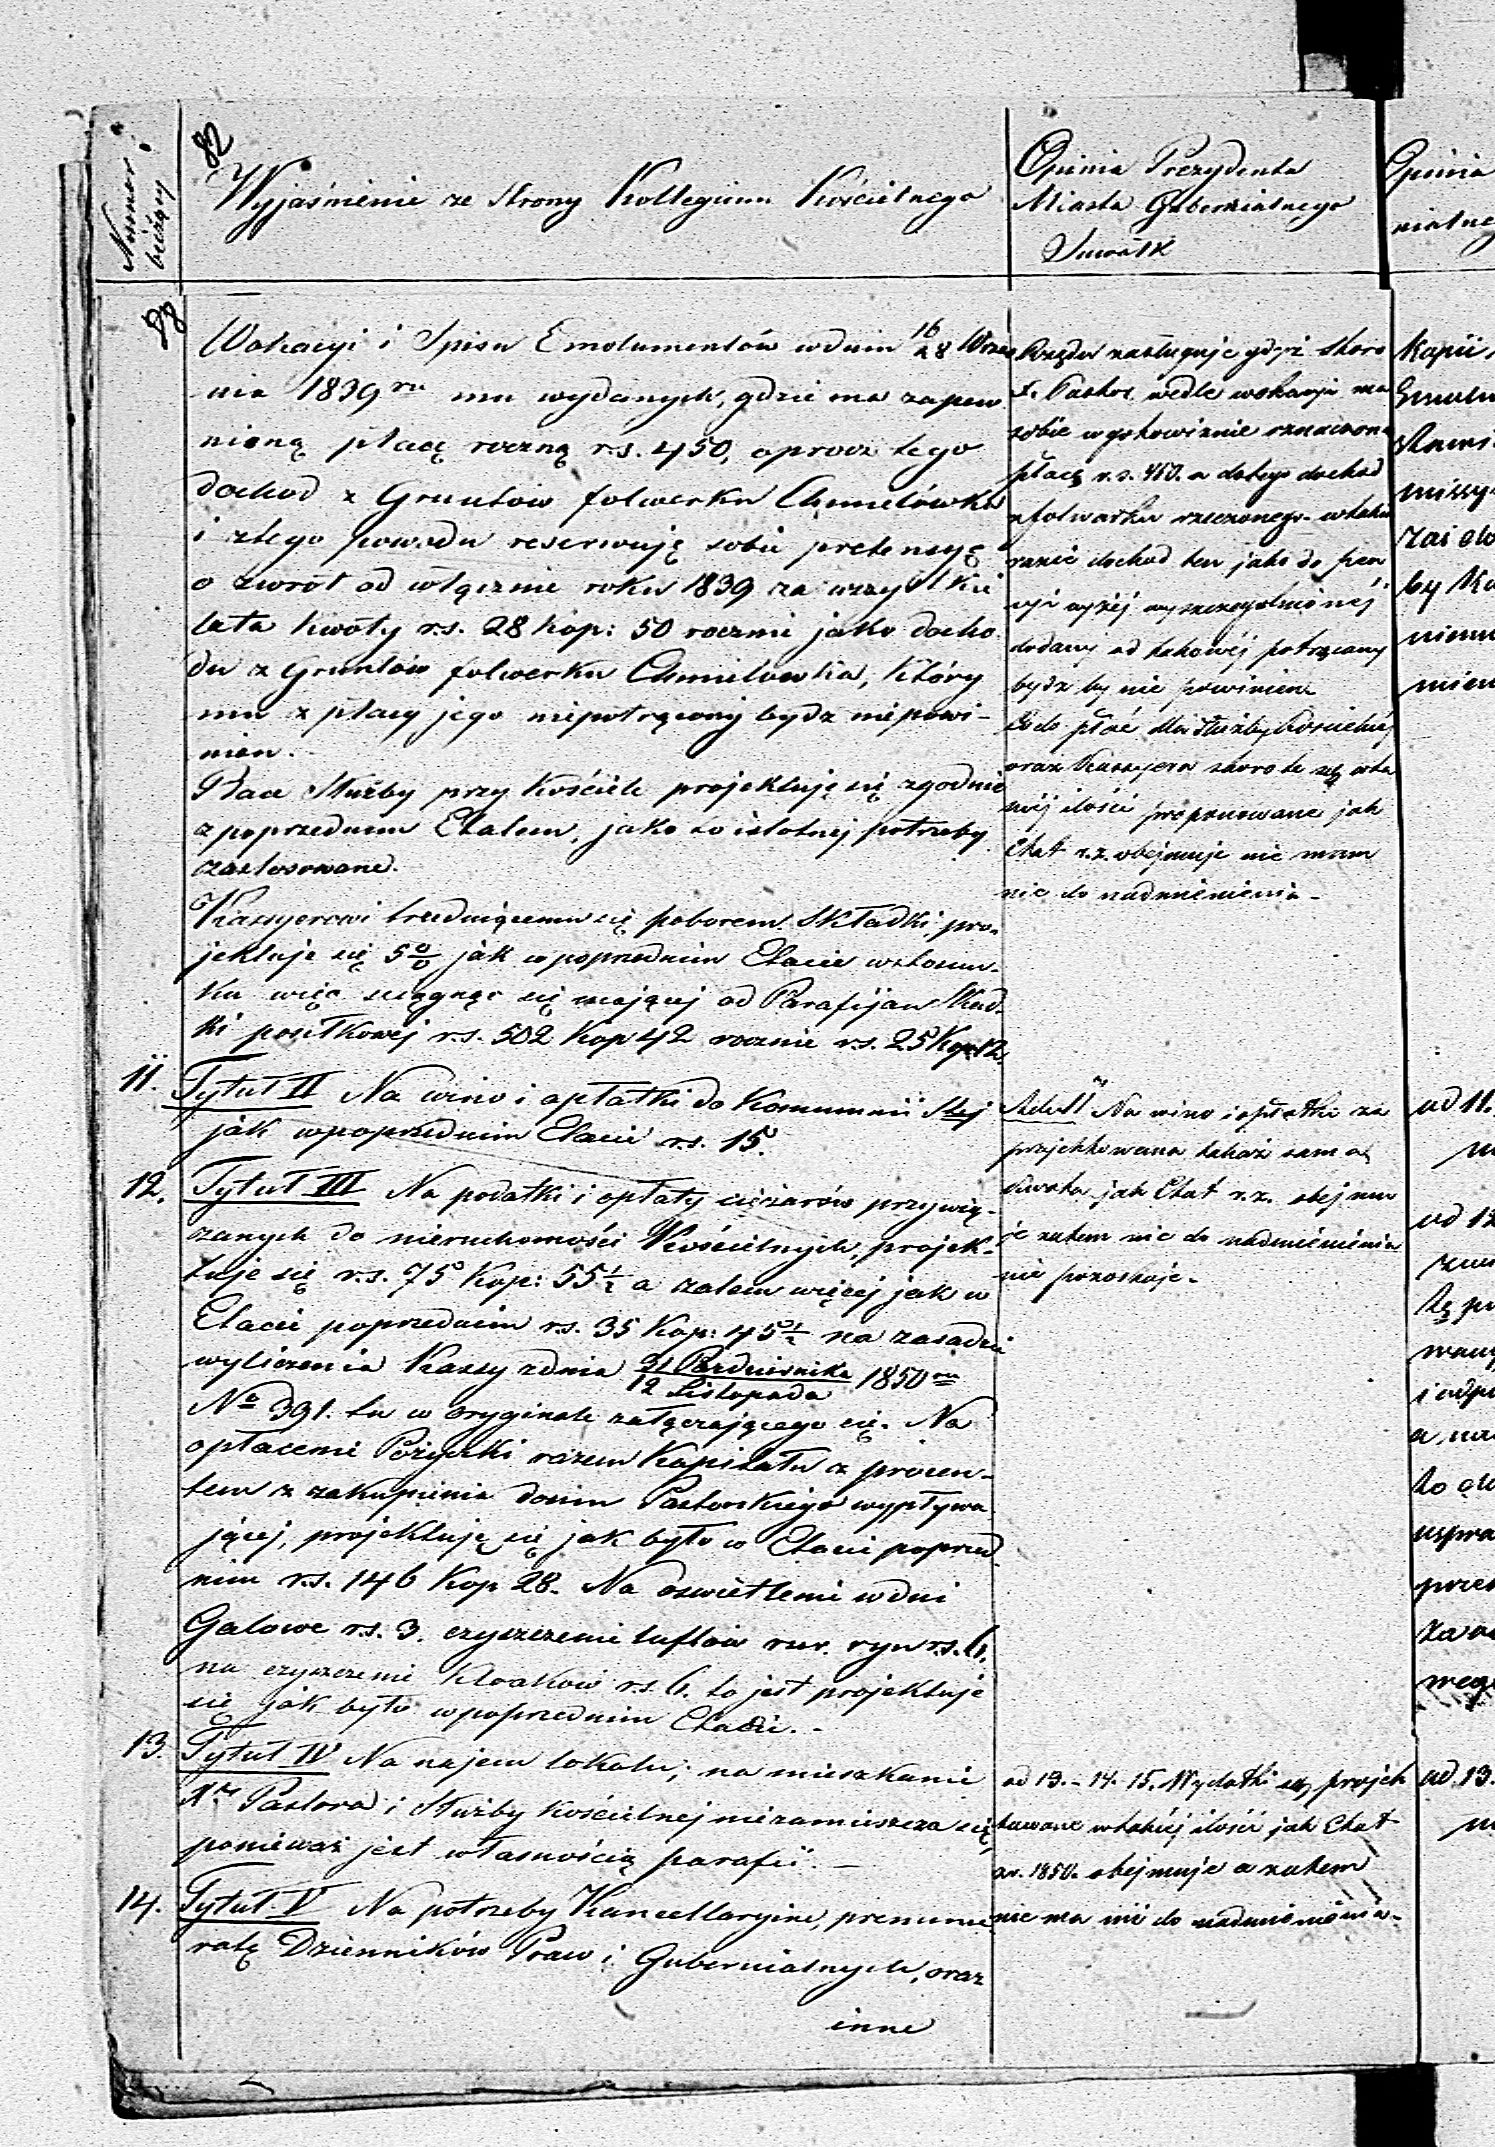 82
Nummer bieżący
Wyjaśnienie ze strony Kollegium Kościelnego
88
Wokacyi i Spisu Emolumentów w dniu 16/28 Wrześ
nia 1839 ru mu wydanych, gdzie ma zapew
nioną płacę roczną r.s. 450, oprocz tego
dochod z Gruntów folwerku Chmielówka
i ztego powodu reserwuję sobie pretensyę
o zwrót od włącznie roku 1839 za wszystkie
lata kwoty r.s. 28 kop: 50 rocznie jako docho
du z Gruntów folwerku Chmielowka, który
mu z płacy jego niepotrącony bydz niepowi-
nien.
Płace Służby przy kościele projektuję się zgodnie
z poprzednim Etatem, jako do istotnej potrzeby
zastosowane.
Kassyerowi trudniącemu się poborem Składki, pro-
jektuje się 5 0/0 jak w poprzednim Etacie w stosun-
ku więc ściągnąć się mającej od Parafijan Skład-
ki posiłkowej r.s. 502 Kop 42 rocznie r.s. 25 Kop. 12.
11. Tytuł II Na wino i opłatki do Kommunii Stej
jak w poprzednim Etacie r.s. 15.
12. Tytuł III Na podatki i opłaty ciężarów przywią-
zanych do nieruchomości Kościelnych, projek-
tuje się r.s. 75 Kop: 55 1/2 a zatem więcej jak w
Etacie poprzednim r.s. 35 Kop: 45 1/2 na zasadzie
wyliczenia Kassy z dnia 31 Pazdziernika / 12 Listopada 1850 ru
No 391. tu w oryginale załączającego się. Na
opłacenie Pożyczki razem Kapitału z procen-
tem z zakupienia domu Pastorskiego wypływa
jącej, projektuję się jak było w Etacie poprzed
nim r.s. 146 Kop 28. Na oswietlenie w dni
Galowe r.s. 3. czyszczenie luftów ryn r.s. 6.
na czyszczenie Kloaków r.s. 6. to jest projektuje
się jak było w poprzednim Etacie. -
13. Tytuł IV Na najem lokalu; na mieszkanie
Pastora i Służby kościelnej niezamieszcza się
ponieważ jest własnością parafii. -
14. Tytuł V Na potrzeby Kancellaryjne, prenume
ratę Dzienników Praw i Gubernialnych, oraz
inne
Opinia Prezydenta
Miasta Gubernialnego
Suwałk
Rządu zasługuje gdyż skoro
X. Pastor wedle wokacyi ma
sobie w gotowiznie oznaczoną
płacę r.s. 450. a do tego dochod
z folwarku rzeczonego w takim
razie dochod ten jako do pen
syi wyżéj wyszczególnionéj
dodany od takowéj potrącany
bydz by nie powinien
Co do płac dla Służby Kościelnéj
oraz Kassyera skoro te są w ta
kiéj ilości proponowane jak
Etat r.z. obejmuje nie mam
nic do nadmienienia -
Na wino i opłatki za
projektowana takaż sama
kwota jak Etat r.z. obejmu
je zatem nic do nadmienienia
nie pozostaje -
ad 13. - 14. 15. Wydatki są projek
towane w takiéj ilości jak Etat
z r. 1850. obejmuje a zatem
nie ma nic do nadmienienia -
Opinia
nialne
Kopii
by
ad 11.
ad 12
i odpo
a na
uspra
przez
ad 13.